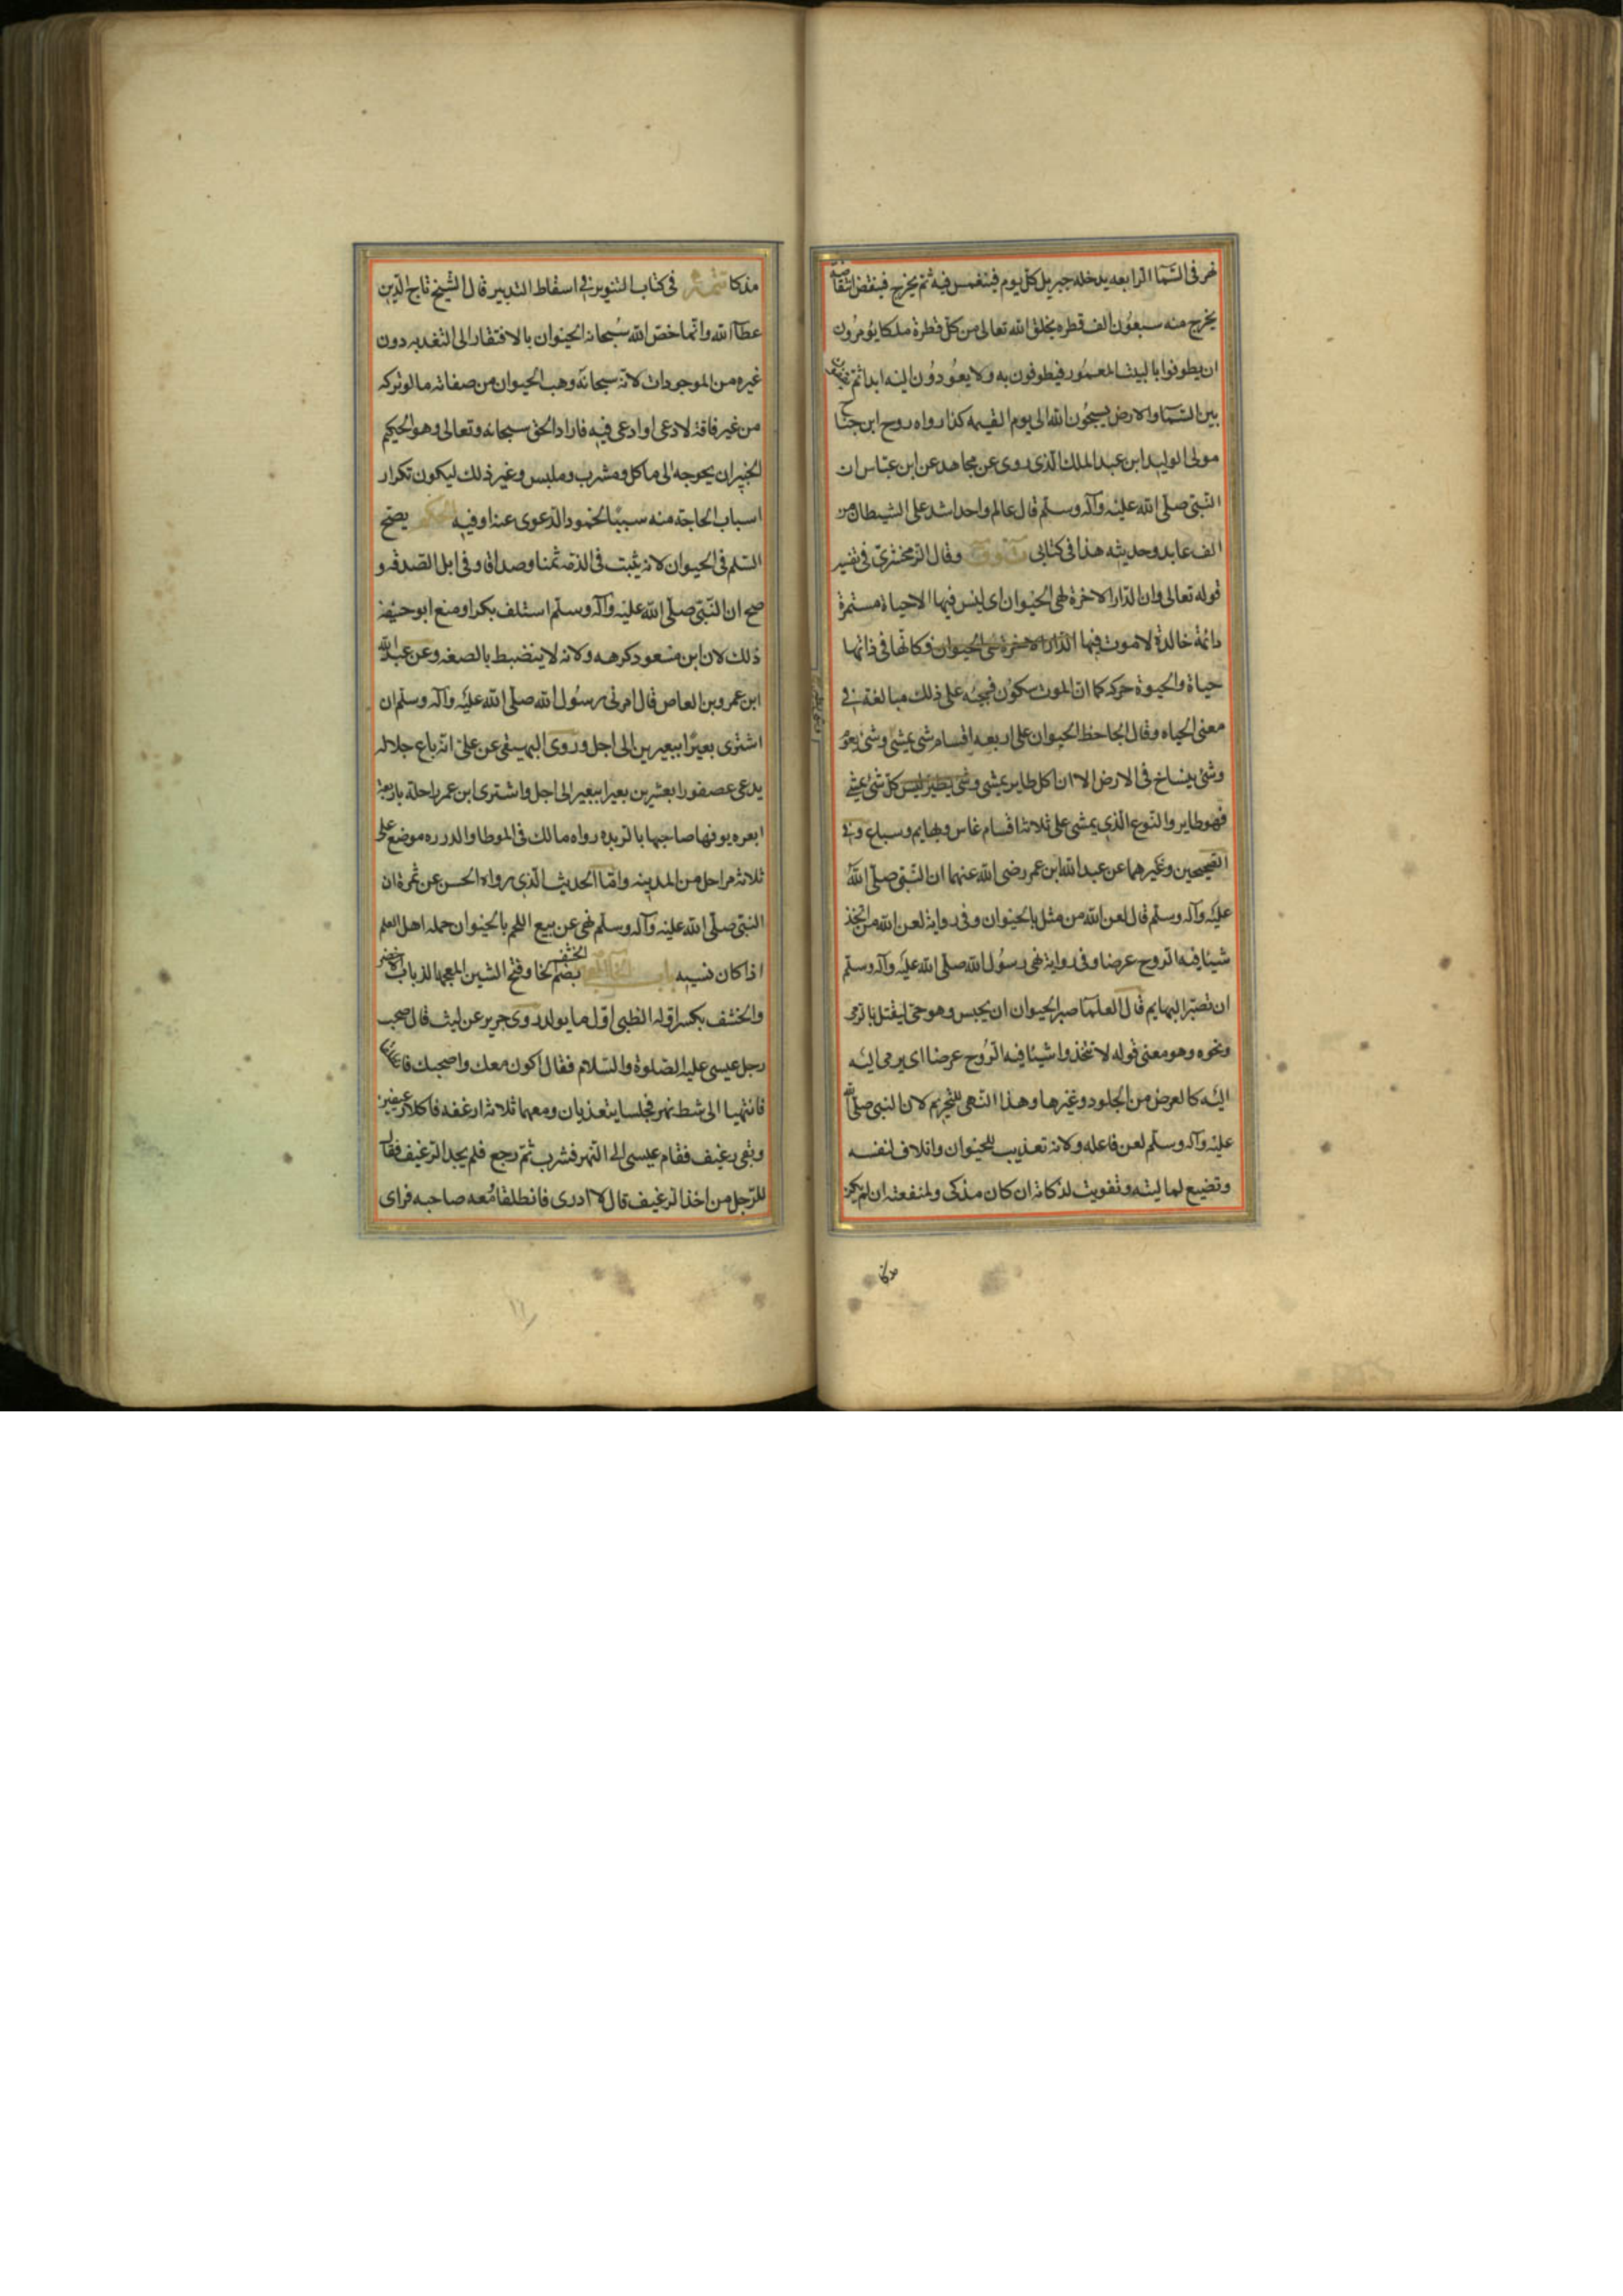 نهر فى السّما الرابعه يدخله جبريل كلّ يوم فينغمس فيه ثم يخرج فينفض انتفاضه
يخرج منه سبعُون الف قطره يخلق الله تعالى من كلّ قطرة ملكا يُومرُون
ان يطوفوا بالبيت المعمُور فيطوفون به ولا يعُودُون اليه ابدا ثم
بين السّما والارض يسبحُون الله الى يوم القيمه كذا رواه روح ابن جنا
مولى الوليد ابن عبد الملك الّذى روى عن مجاهد عن ابن عبّاس ان
النّبى صلّى الله عليْه وآله وسلّم قال عالم واحد اشد على الشيطان من
الف عابد وحديثه هذا فى كتابى وقال الزمخشرىّ فى تفسير
قوله تعالى وان الدّار الاخرة لهى الحيَوان اى ليس فيها الا حياة مستمرة
دائمة خالدة لا موت فيها الدّار الاخرة هى الحيوان فكانّها فى ذاتها
حياة والحيوة حركه كما انّ الموت سكوُن فمجيه على ذلك مبالغة فى
معنى الحياه وقال الجاحظ الحيوان على اربعه اقسام شى يمشى وشى يعوم
وشئ ينساخ فى الارض الا ان كل طاير يمشى وشى يطير ليس كلّ شئ يمشى
فهو طاير والنّوع الّذى يمشى على ثلاثة اقسام ناس وبهايم وسباع وفى
الصّحيحين وغيرهما عن عبد الله ابن عمر رضى الله عنهما ان النّبى صلّى اللهُ
عليْه وآله وسلّم قال لعن الله من مثل بالحيَوان وفى رواية لعن الله من اتخذ
شيئا فيه الرّوح عرضا وفى رواية نهى رسُول الله صلّى الله عليْه وآله وسلّم
ان تصبّر البهايم قال العلمآ صبر الحيوان ان يحبس وهو حىّ ليقتل بالرّمى
ونحوه وهو معنى قوله لا تتخذوا شيئا فيه الرّوح عرضا اى يرمى اليْه
اليْه كالعرض من الجلود وغيرها وهذا النّهى للتحريم لان النبى صلّى الله
عليْه وآله وسلّم لعن فاعله ولانه تعذيب للحيَوان واتلاف لنفسه
وتضييع لماليته وتفويت لذكاته ان كان مذكى ولمنفعته ان لم يكن
مذكا
مذكا تتمة فى كتاب التنوير فى اسقاط التدبير قال الشّيخ تاج الدّين
عطآ الله وانّما خصّ الله سُبحانه الحيَوان بالافتقار الى التغذيه دون
غيره من الموجودات لانه سبحانه وهب الحيوان من صفاته ما لو تركه
من غير فاقة لادعى او ادعى فيه فاراد الحق سبحانه وتعالى وهو الحكيم
الخبير ان يحوجه الى ماكل ومشرب وملبس وغير ذلك ليكون تكرار
اسباب الحاجة منه سببًا لخمود الدّعوى عنه او فيه الحكم يصحّ
السّلم فى الحيوان لانه يثبت فى الذمّة ثمنا وصداقا وفى ابل الصّدقه و
صح ان النّبى صلّى الله عليْه وآله وسلّم استلف بكرا ومنع ابو حنيفة
ذلك لان ابن مسعود كرهه ولانه لا ينضبط بالصفه وعن عبد الله
ابن عمرو بن العاص قال امرنى رسُول الله صلّى الله عليْه وآله وسلّم ان
اشترى بعيرًا ببعيرين الى اجل وروى البيهقى عن علىّ انه باع جلاله
يدعى عصفورا بعشرين بعيرا ببعير الى اجل واشترى ابن عمر راحلة باربعة
ابعره يوفها صاحبها بالربذه رواه مالك فى الموطا والدرره موضع على
ثلاثة مراحل من المدينه وامّا الحديث الّذى رواه الحسن عن ثمرة ان
النبّى صلّى الله عليْه وآله وسلّم نهى عن بيع اللحم بالحيَوان حمله اهل العلم
اذا كان نسيه باب الخا المعجمه الخشف بضمّ الخا وفتح الشين المعجمه الذباب الاخضر
والخشف بكسر اوّله الظبى اوّل ما يولد روى جرير عن ليث قال صحب
رجل عيسى عليه الصّلوة والسّلام فقال اكون معك واصحبك
فانتهيا الى شط نهر فجلسا يتغديان ومعهما ثلاثة ارغفه فاكلا رغيفين
وبقى رغيف فقام عيسى الى النّهر فشرب ثمّ رجع فلم يجد الرّغيف فقال
للرّجل من اخذ الرغيف قال لا ادرى فانطلقا مُعه صاحبه فراى